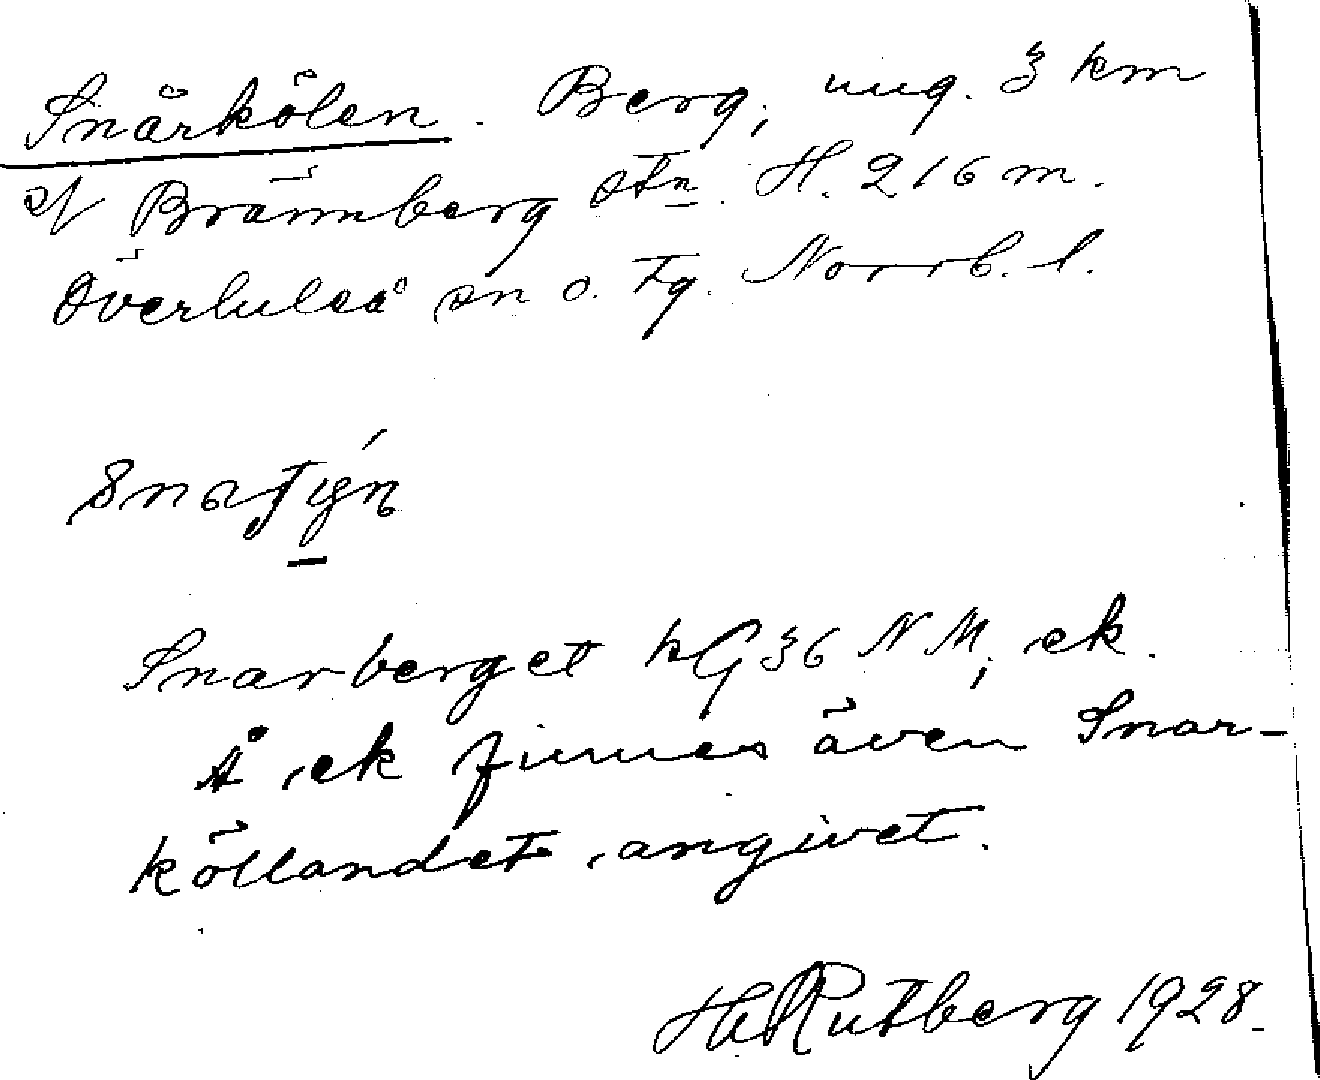 Snårkölen. Berg, ung. 3 km
Brännberg stn. H. 216 m.
Överluleå sn o. tg. Norrb. l.
Snarberget kG 36 NM, ek.
Å ek finnes även Snar-
köllandet angivet.
H Rutberg 1928.